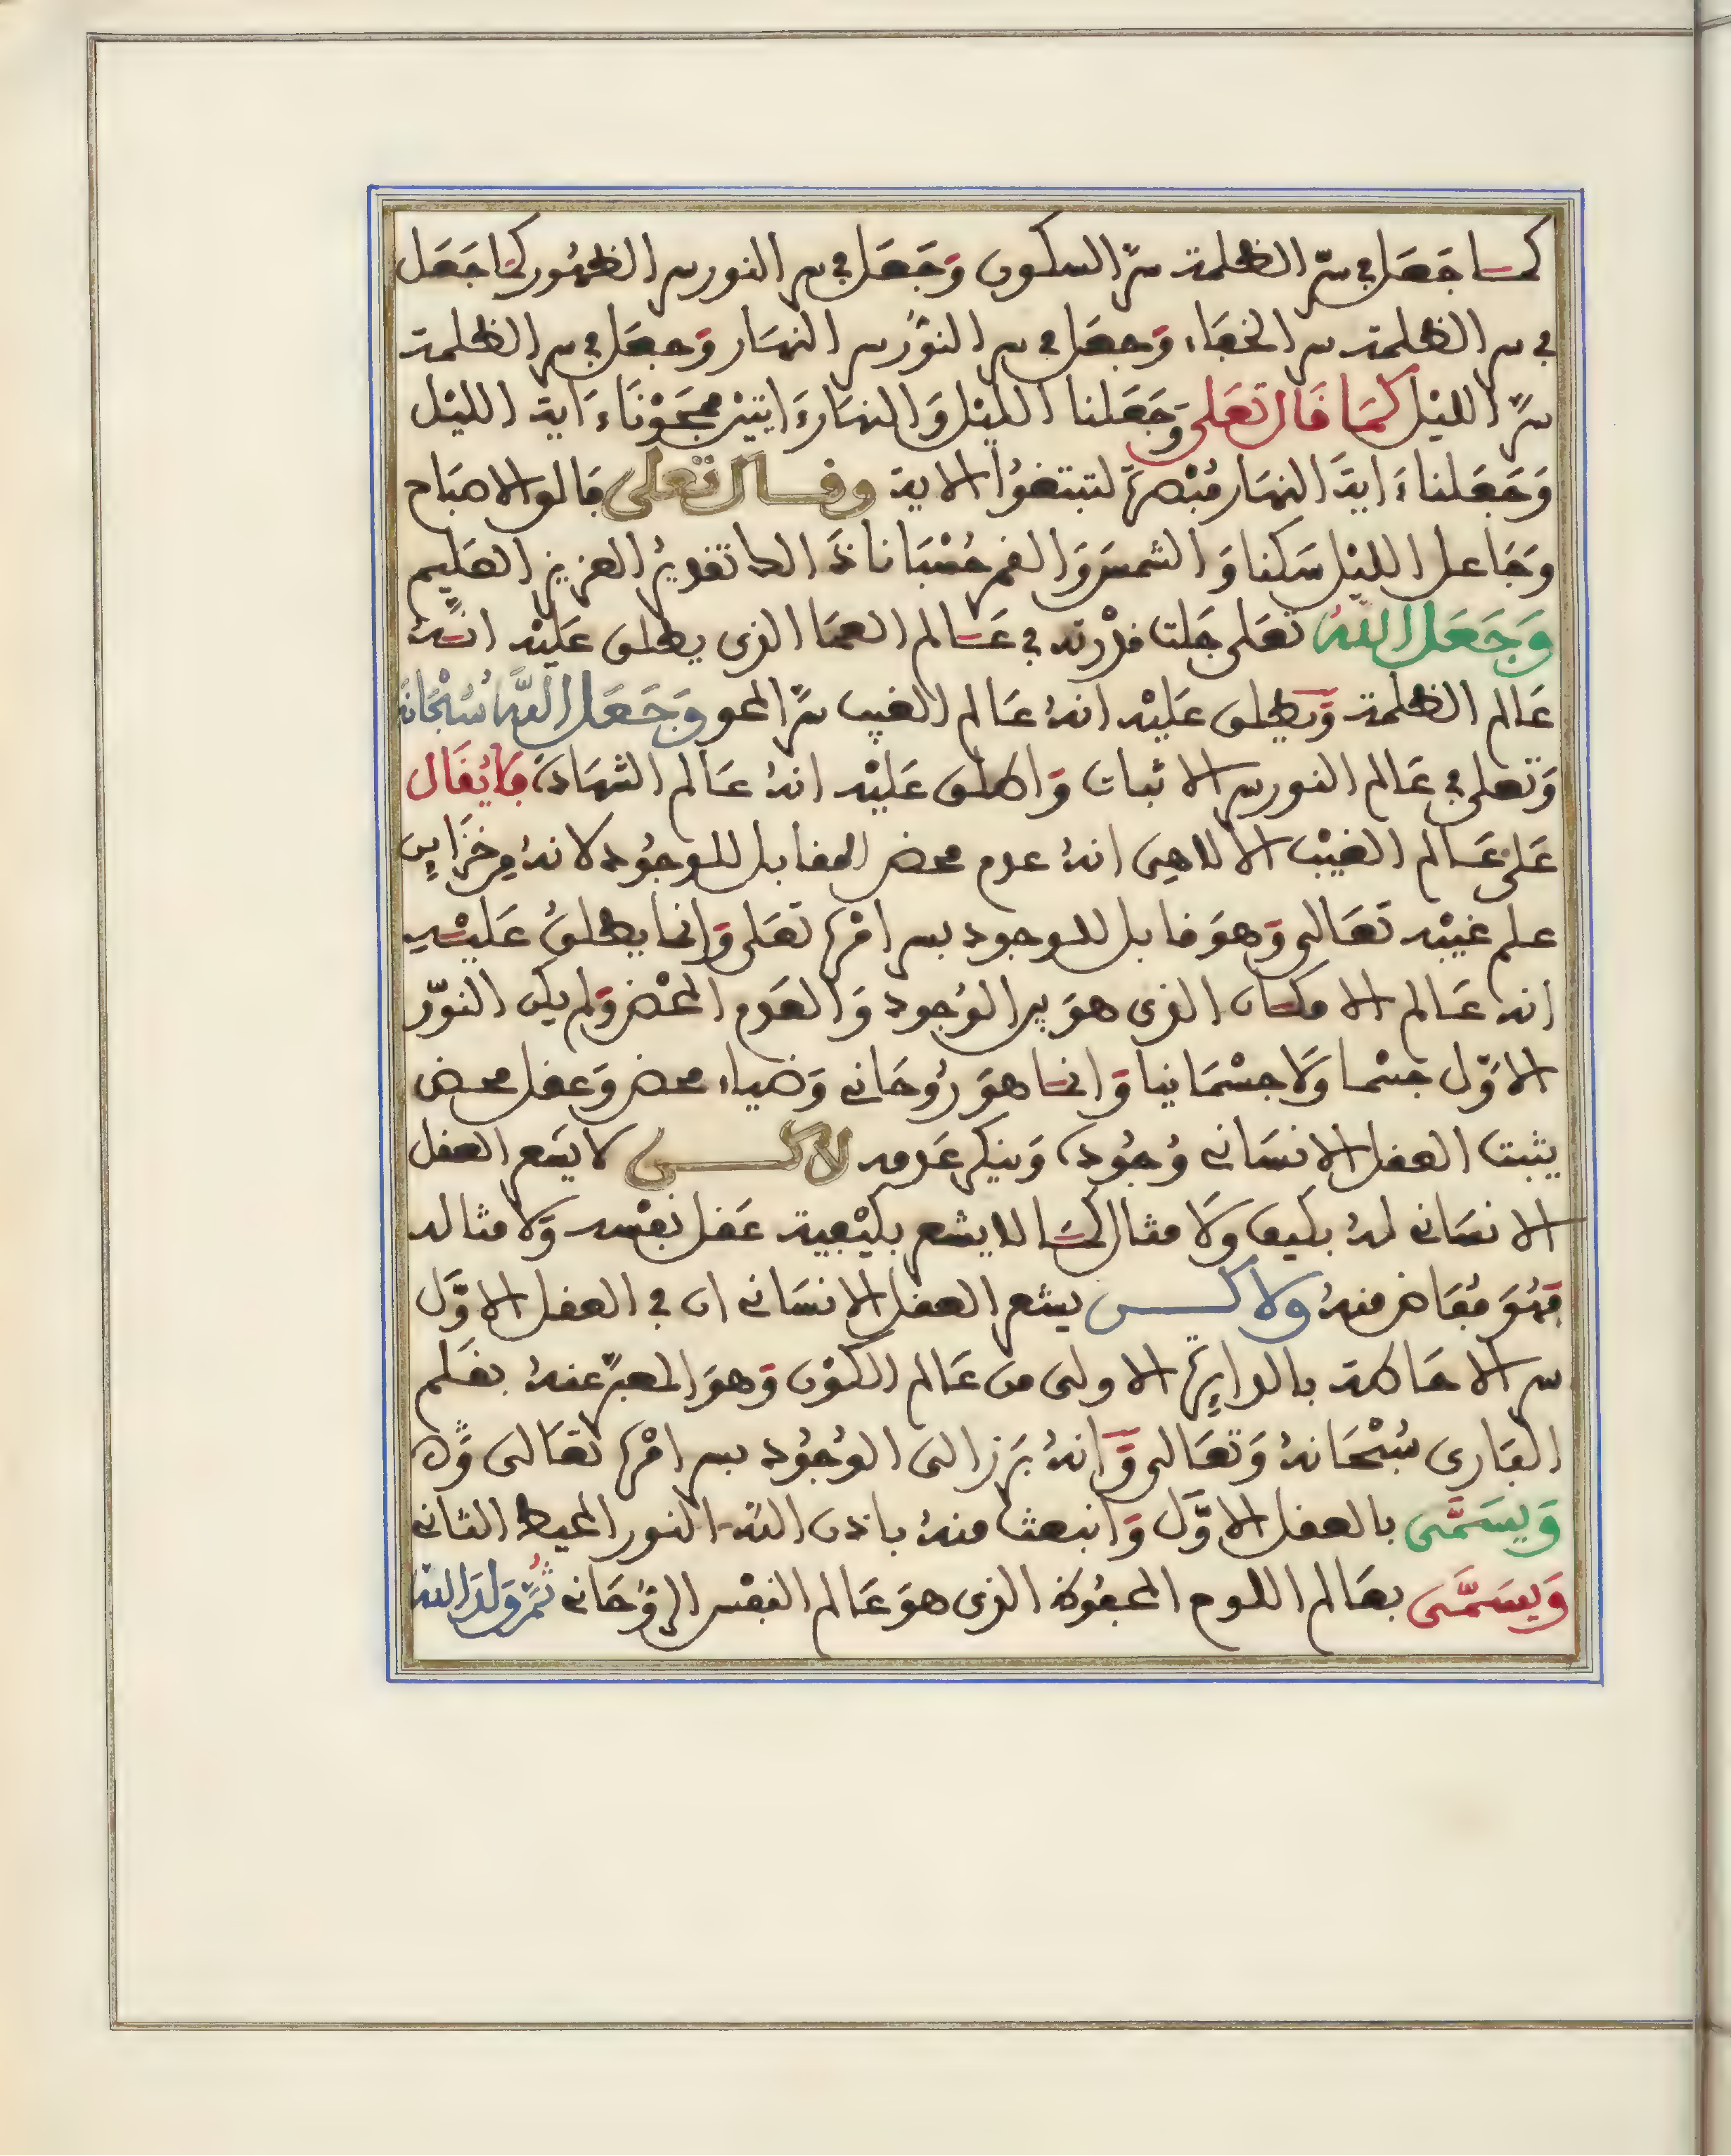 كما جعل في سرّ الظلمة سرّ السكون وَجَعَل في سر النور سر الظهُور كمَا جَعَل
في سر الظلمة سر الخفَاء وَجعَل في سر النوُر سر النهَار وَجعَل في سر الظلمة
سرَّ الليْل كمَا قَال تعَلى وَجَعَلنا الليْل وَالنهَار ءَايتيْن فمَحَوْنَا ءَاية الليْل
وَجَعَلنا ءَايةَ النهَار مُبْصرَةً لتبتغوُا الاية وقال تعلى فَالق الاصبَاح
وَجَاعل الليْل سَكنا وَالشمسَ وَالقمر حُسْبَانا ذَالك تقديرُ العزيز العَليم
وَجَعَل اللهُ تعَلى جَلت قدْرته في عَالم العمَا الذي يطلق عَليْه انهُ
عَالم الظلمة وَيطلق عَليْه انهُ عَالم الغيب سرَّ المحو وَجَعَل اللهُ سُبْحَانه
وَتعلى في عَالم النور سر الاثبات وَاطلق عَليْه انهُ عَالم الشهَادة فلا يُقَال
عَلى عَالم الغيْب الالاهي انهُ عدم محض المقابل للوجُود لانهُ من خزَاين
علم غيْبه تعَالى وَهوَ قابل للوجود بسر امْره تعَلى وَانما يطلقُ عَليْه
انه عَالم الامكان الذي هوَ بين الوُجود وَالعَدم المحْض وَلم يكن النوّر
الاوَّل جسْما وَلا جسْمَانيا وَانما هوَ رُوحَاني وَضياء محض وَعقل محض
يثبت العقل الانسَاني وُجُوده وَينكر عَدمه لاكن لا يسَع العقل
الانسَاني لهُ بكيف وَلا مثال كمَا لا يشعر بكيْفية عَقل نفسْه وَلا مثاله
فهُوَ مُفَاض منهُ ولاكن يشعر العقل الانسَاني ان في العقل الاوَّل
سر الاحَاطة بالدايرة الاولى من عَالم الكوْن وَهوَ المعبَّر عنهُ بقلم
البَارى سُبْحَانهُ وَتعَالى وَانهُ بَرَز الى الوُجُود بسر امْره تعَالى
وَيسَمَّى بالعقل الاوَّل وَانبعث منهُ باذن الله النور المحيط الثاني
وَيسَمَّى بعَالم اللوح المحفوُظ الذي هوَ عَالم النفْس الرُّوحَاني ثمَّ وَلدَ الله